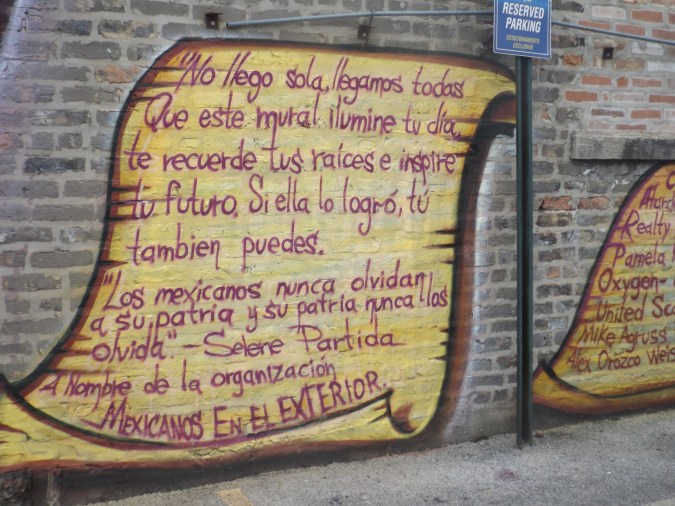 RESERVED
PARKING
ESTACIONAMIENTO
EXCLUSIVO
"No llego sola, llegamos todas
Que este mural ilumine tu día,
te recuerde tus raíces e inspire
tu futuro. Si ella lo logró, tú
tambien puedes.
"Los mexicanos nunca olvidan
a su patria y su patria nunca los
olvida". - Selene Partida
A Nombre de la organización
MEXICANOS EN EL EXTERIOR.
Realty
Pamela
Oxygen-
United
Mike Agruss
Alex Orozco